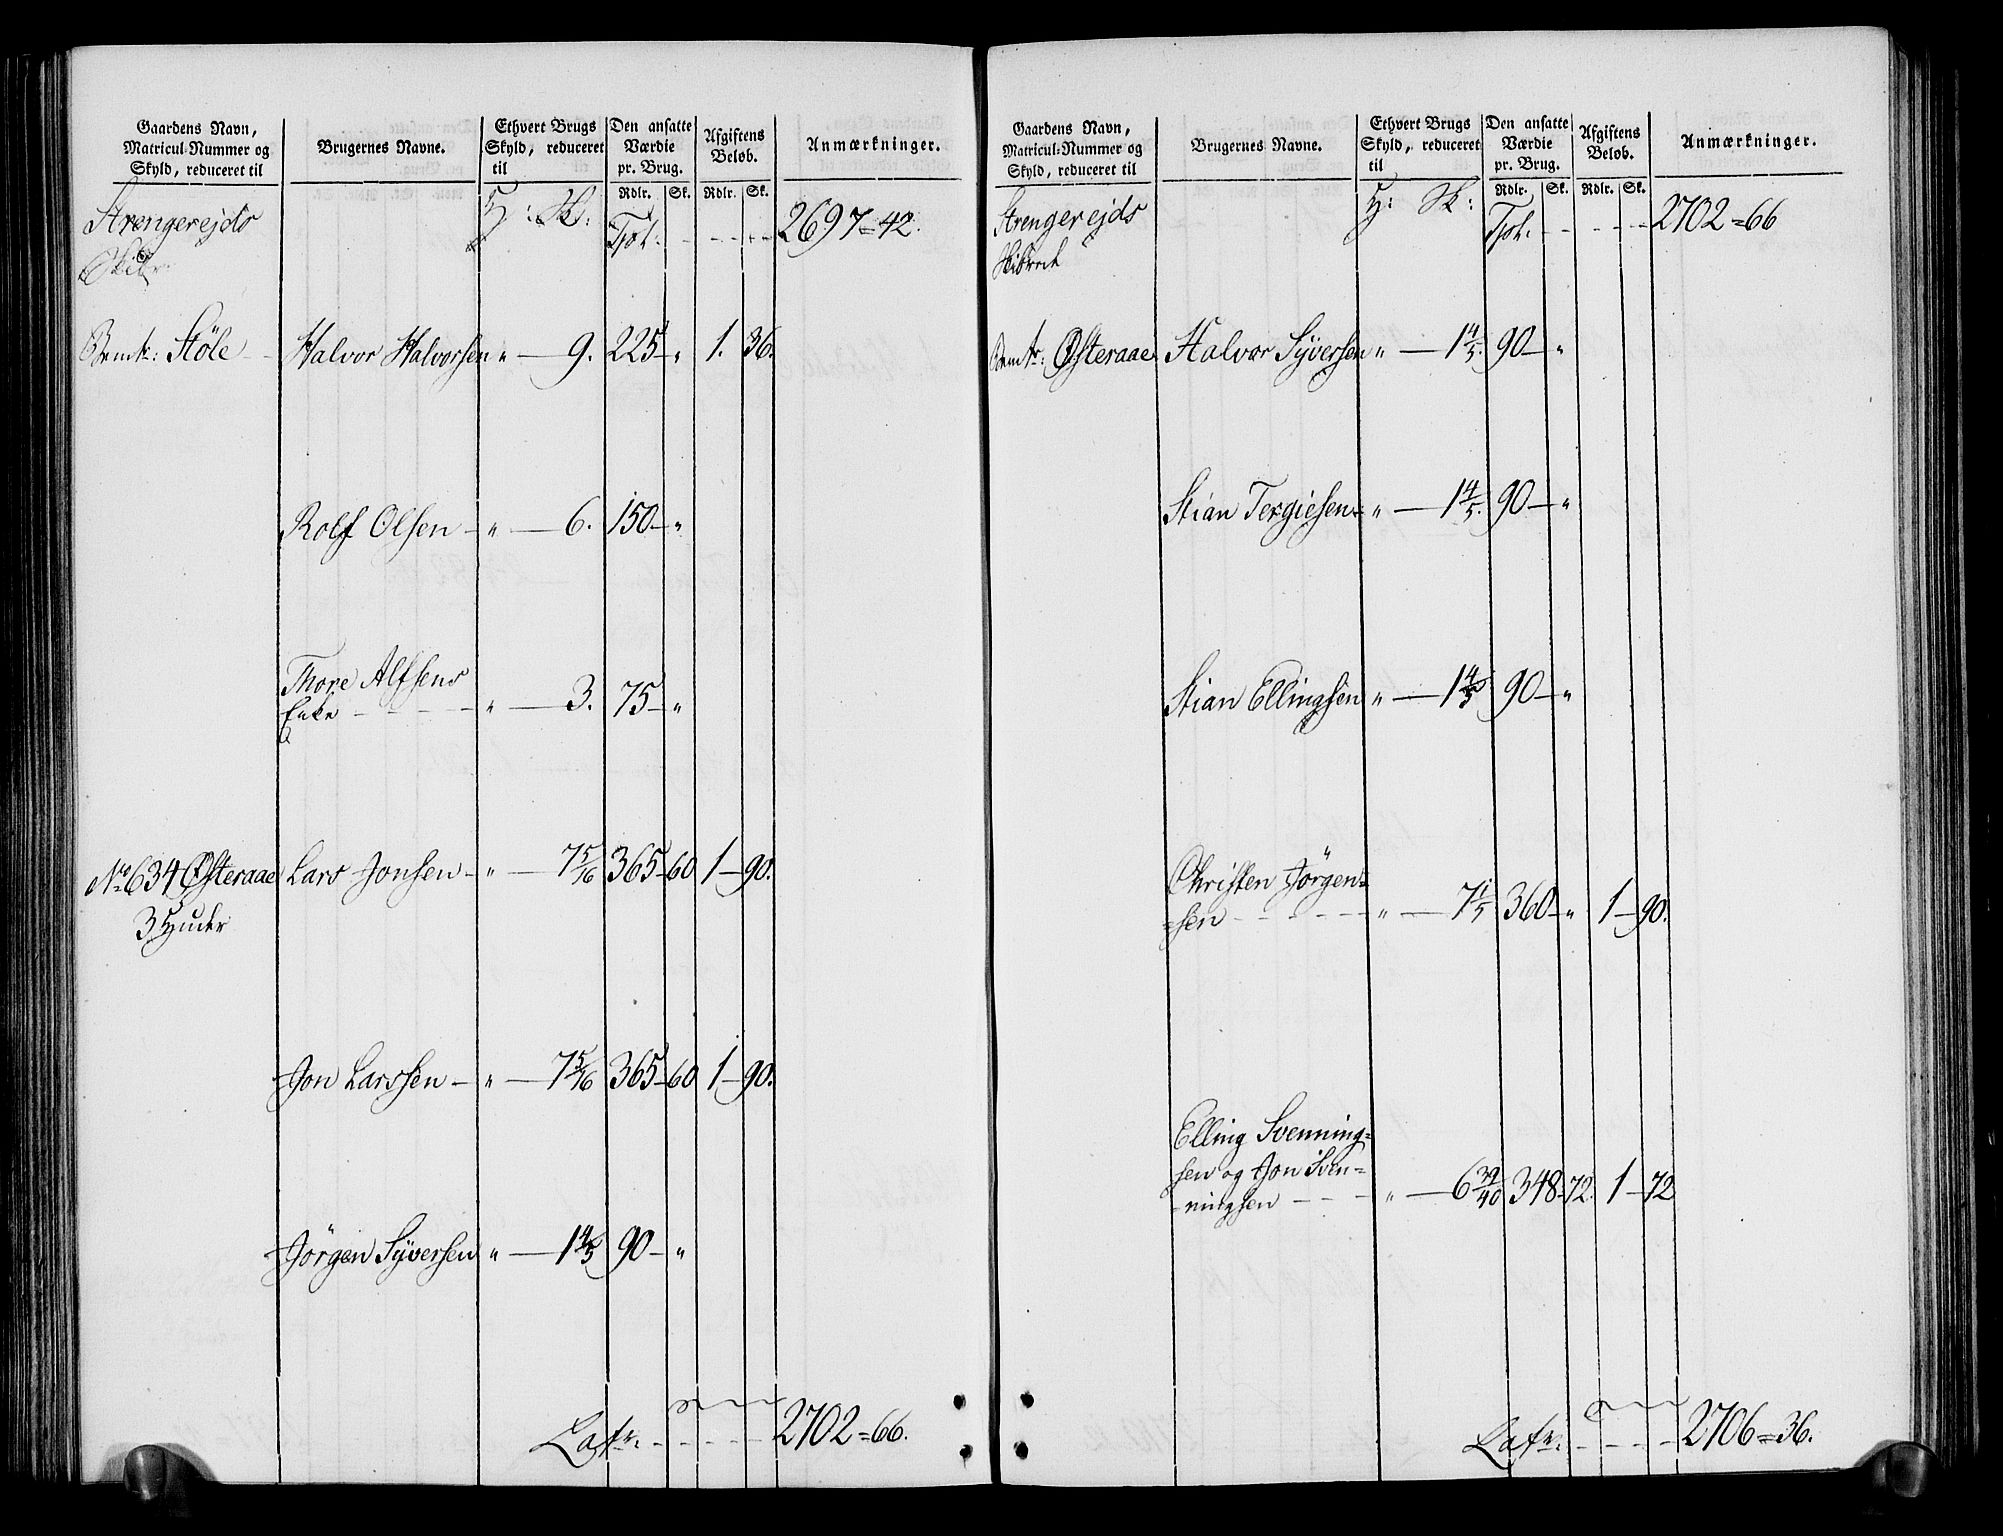 Gaardens Navn, Matricul-Nummer og Skyld, reduceret til | Brugernes Navne. | Ethvert Brugs Skyld, reduceret til | Den ansatte Værdie pr. Brug. | Afgiftens Beløb. | Anmærkninger.
Rdlr. Sk. Rdlr. Sk.
Strengerejds H: Sk: Tpt. 2697=42.
Skibr:
Bemte: Støle Halvor Halvorsen „ — 9. 225 — „ 1. 36.
Rolf Olsen — „ — 6. 150 — „
Thore Alfsens
Enke „ — 3. 75 — „
No 634 Østeraae Lars Jonsen — „ — 7 5/16 365 — 60 1 — 90.
3 Huder
Jon Larssen — „ — 7 5/16 365 — 60 1 — 90.
Jörgen Syversen „ — 1 4/5 90 — „
Latr. 2702=66.
Gaardens Navn, Matricul-Nummer og Skyld, reduceret til | Brugernes Navne. | Ethvert Brugs Skyld, reduceret til | Den ansatte Værdie pr. Brug. | Afgiftens Beløb. | Anmærkninger.
Rdlr. Sk. Rdlr. Sk.
Strengerejds H: Sk: Tpt. 2702=66
Skibred
Bemte: Østeraae Halvor Syversen „ — 1 4/5. 90 — „
Stian Tergiesen „ — 1 4/5. 90 — „
Stian Ellingsen „ — 1 4/5 90 — „
Christen Jörgen=
=sen „ — 7 1/5 360 — „ 1 — 90.
Elling Svenning=
sen og Jon Sven=
=ningsen „ — 6 39/40 348 — 72. 1 — 72
Latr. 2706=36.